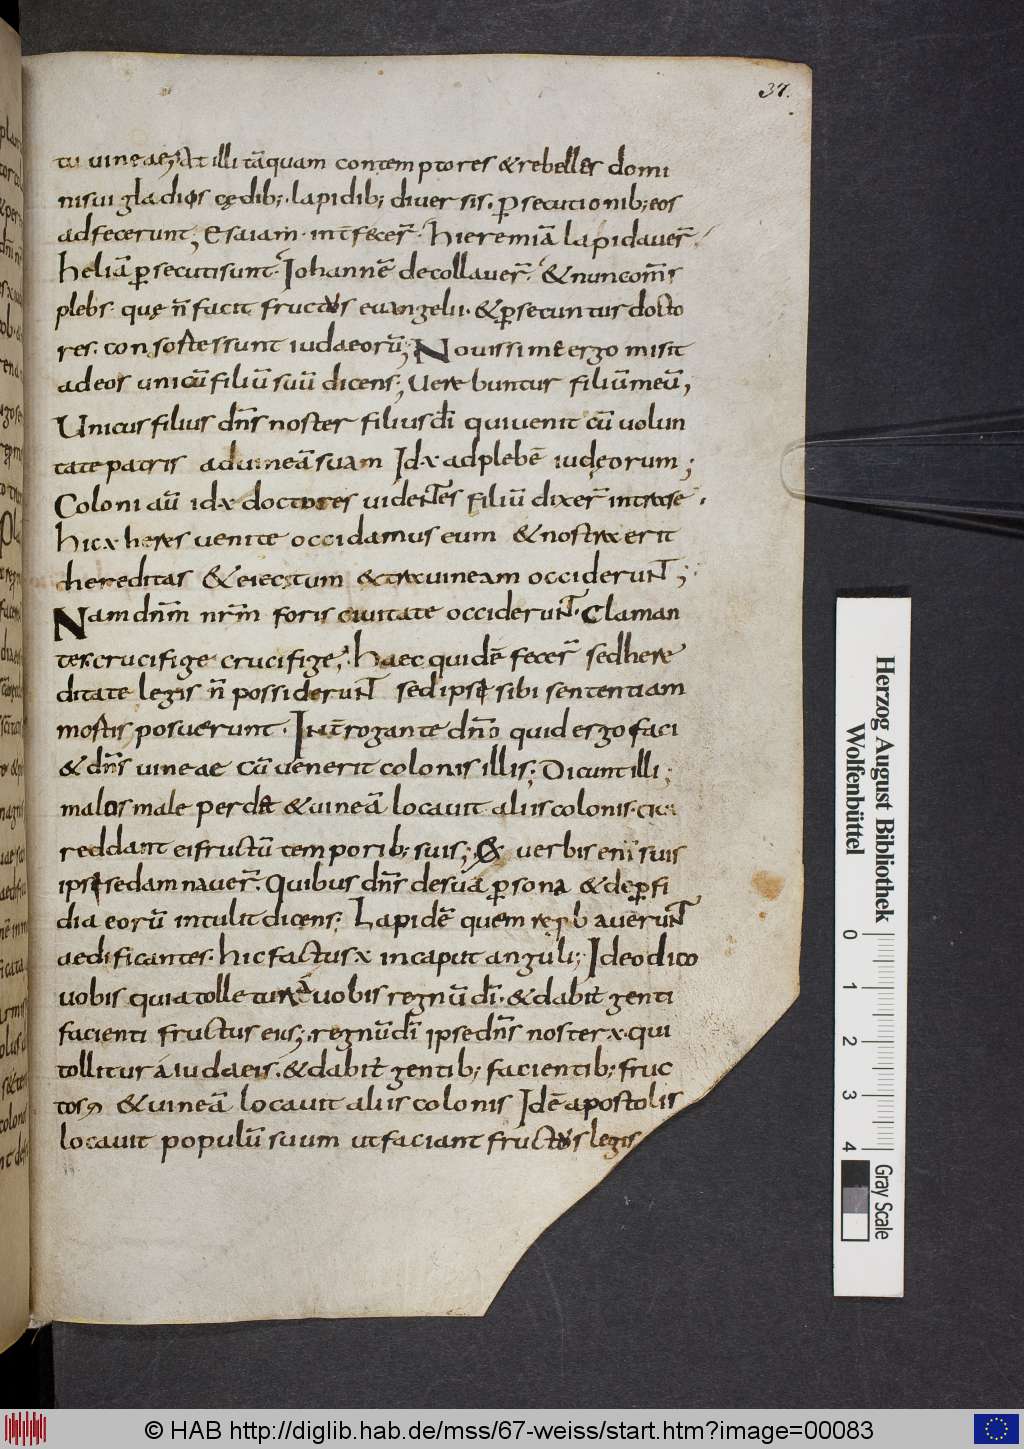 37.
tu uineae; At illi tāquam contemptores & rebelles domi
ni sui gladiis cędib; lapidib; diuersis. ꝑsecutionib; eos
adfecerunt; Esaiam int̄fecer̄. hieremiā lapidauer̄.
heliā ꝑsecuti sunt. Iohannē decollauer̄. & nunc om̄s
plebs quę n̄ facit fructus euangelii. & ꝑsecuntur docto
res. consortes sunt iudaeorū; Nouissime ergo misit
ad eos unicū filiū suū dicens; Uerebuntur filiū meū;
Unicus filius dn̄s noster filius dī qui uenit cū uolun
tate patris ad uineā suam Id÷ ad plebē iudęorum;
Coloni aū id÷ doctores uidentes filiū dixer̄ intra se.
hic÷ heres uenite occidamus eum & nostra erit
hereditas & eiectum extra uineam occiderunt;
Nam dn̄m nr̄m foris ciuitate occiderunt. Claman
tes. crucifige crucifige. haec quidē fecer̄ sed here
ditate legis n̄ possiderunt sed ipse sibi sententiam
mortis posuerunt. Int̄rogante dn̄o quid ergo faci
& dn̄s uineae cū uenerit colonis illis; Dicunt illi;
malos male perdet & uineā locauit aliis colonis. qui
reddant ei fructū temporib; suis; Ex uerbis enī suis
ipse se damnauer̄. Quibus dn̄s de sua ꝑsona & de ꝑfi
dia eorū intulit dicens; Lapidē quem reprobauerunt
aedificantes. hic factus÷ in caput anguli; Ideo dico
uobis quia tolletur a uobis regnū dī. & dabit̄ genti
facienti fructus eius; regnū dī ipse dn̄s noster÷. qui
tollitur á iudaeis. & dabit̄ gentib; facientib; fruc
tos, & uineā locauit aliis colonis Idē apostolis
locauit populū suum ut faciant fructus legis
Herzog August Bibliothek
Wolfenbüttel
0 1 2 3 4
Gray Scale
© HAB http://diglib.hab.de/mss/67-weiss/start.htm?image=00083